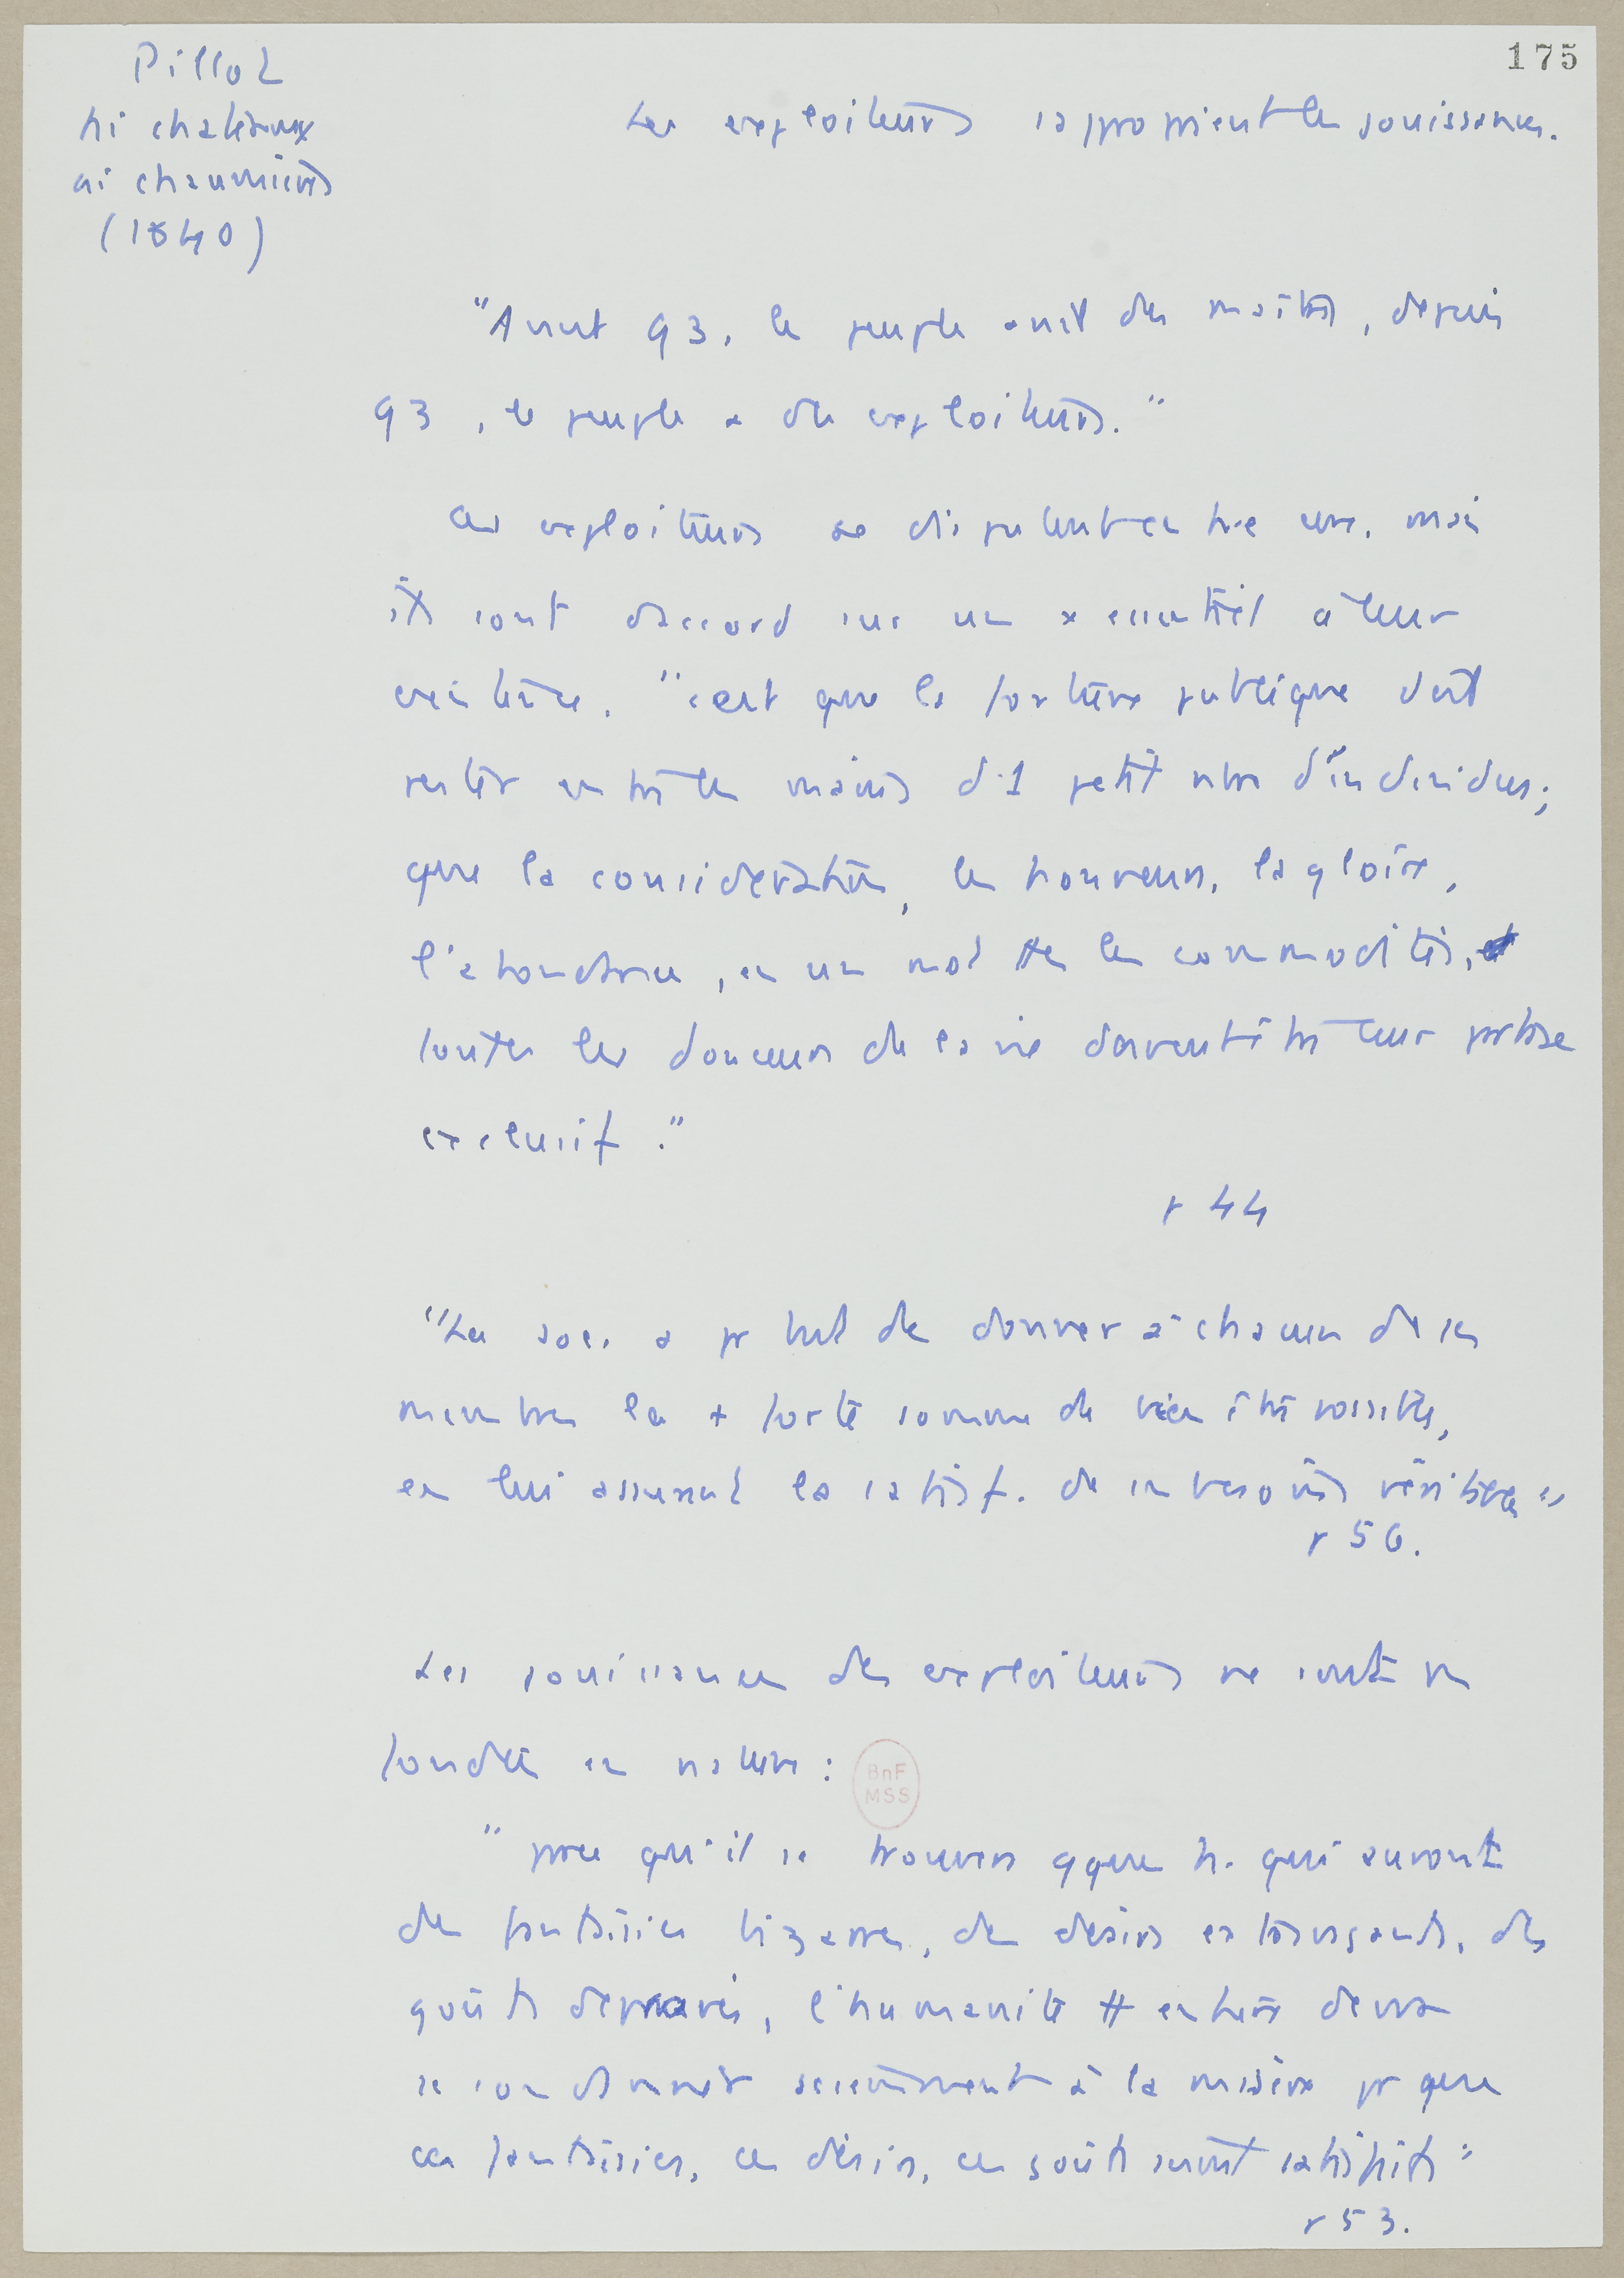 175
Pillot
Ni chateaux
ni chaumières
(1840)
Les exploiteurs s'approprient les jouissances.
"Avant 93, le peuple avait des maîtres, depuis
93, le peuple a des exploiteurs."
Ces exploiteurs se disputent entre eux, mais
ils sont d'accord sur un essentiel à leur
existence. "c'est que la fortune publique doit
rester entre les mains d'1 petit nbre d'individus;
que la considération, les honneurs, la gloire,
l'abondance, en un mot ttes les commodités,
toutes les douceurs de la vie doivent être leur partage
exclusif."
p 44
"La soc. a pr but de donner à chacun de ses
membres la + forte somme de bien être possible,
en lui assurant la satisf. de ses besoins véritables"
p 56.
Les jouissances des exploiteurs ne sont pas
fondées en nature :
"parce qu'il se trouvera qques h. qui auront
des fantaisies bizarres, des désirs extravagants, des
goûts dépravés, l'humanité tt entière devra
se condamner sciemment à la misère pr que
ces fantaisies, ces désirs, ces goûts soient satisfaits"
p 53.
BnF
MSS